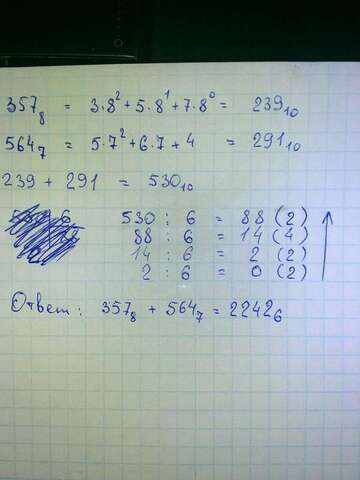 357₈ = 3·8² + 5·8¹ + 7·8⁰ = 239₁₀
564₇ = 5·7² + 6·7 + 4 = 291₁₀
239 + 291 = 530₁₀
530 : 6 = 88 (2)
88 : 6 = 14 (4)
14 : 6 = 2 (2)
2 : 6 = 0 (2)
Ответ: 357₈ + 564₇ = 2242₆